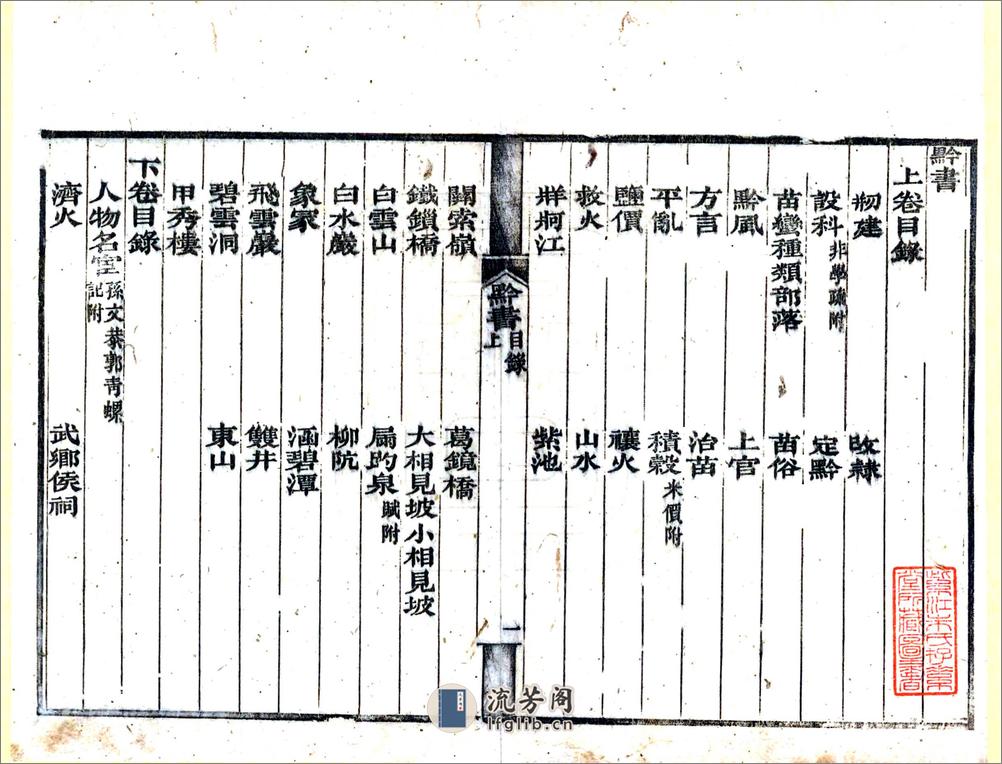 黔書
上卷目錄
刱建　改隸
設科 非學疏附　定黔
苗蠻種類部落　苗俗
黔風　上官
方言　治苗
平亂　積穀 米價附
鹽價　禳火
救火　山水
牂牁江　紫池
黔書 上 目錄 一
關索嶺　葛鏡橋
鐵鎖橋　大相見坡小相見坡
白雲山　扁旳泉 賦附
白水巖　柳阬
象冢　涵碧潭
飛雲巖　雙井
碧雲洞　東山
甲秀樓
下卷目錄
人物名宦 孫文恭郭青螺記附
濟火　武鄉侯祠
紫江朱氏存素堂所藏圖書
流芳阁
lfglib.cn